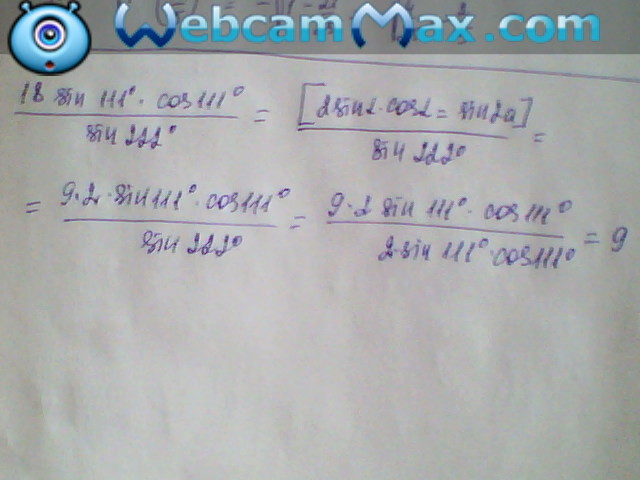 WebcamMax.com
18 sin 111° · cos 111° / sin 222° = [2 sin α · cos α = sin 2α] / sin 222° =
= 9 · 2 · sin 111° · cos 111° / sin 222° = 9 · 2 sin 111° · cos 111° / 2 · sin 111° · cos 111° = 9